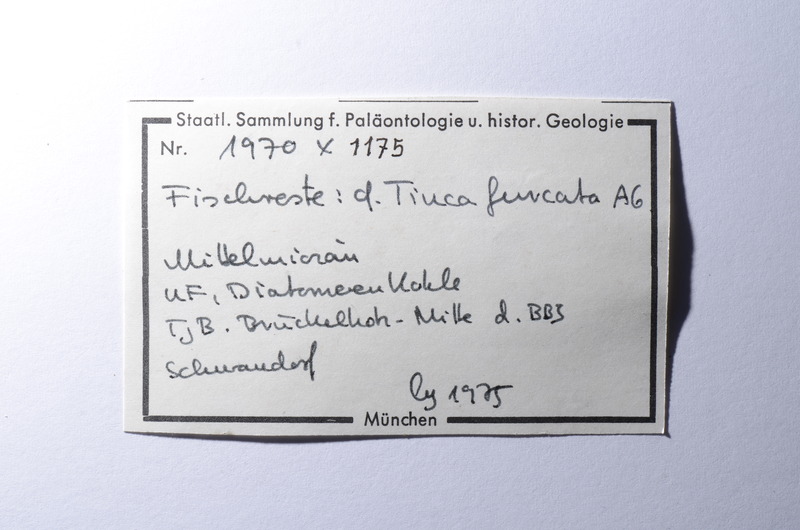 Staatl. Sammlung f. Paläontologie u. histor. Geologie
Nr. 1970 X 1175
Fischreste: cf. Tinca furcata AG
Mittelmiozän
UF, Diatomeenkohle
TgB. Brückelholz-Mitte d. BBS
Schwandorf
1975
München